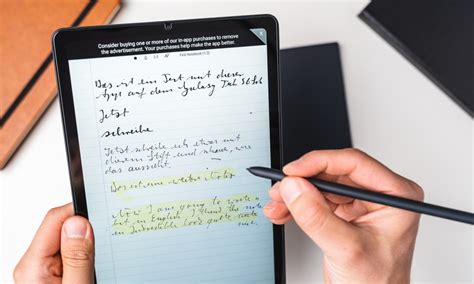 Consider buying one or more of our in-app purchases to remove
the advertisement. Your purchases help make the app better.
First Notebook
Das ist ein Text mit dieser
App auf dem Galaxy Tab S6 Lite
Jetzt
schreibe
Jetzt schreibe ich etwas mit
diesem Stift und schaue, wie
das aussieht.
Das extreme weiter
Now I am going to write a
bit in English. I think the
in looks quite
nice.